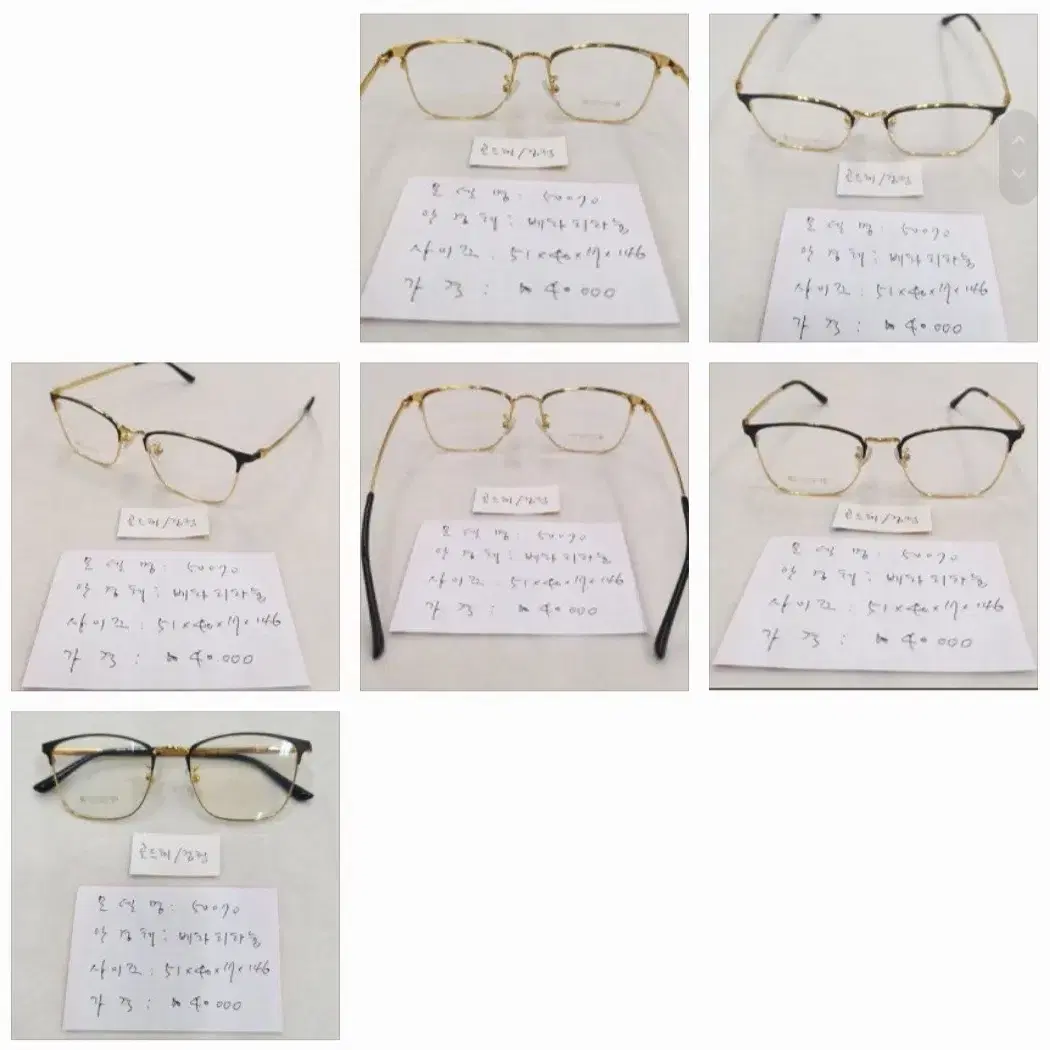 골드테/검정
모델명: 50070
안경테: 베타티타늄
사이즈: 51×40×17×146
가격: ₩40.000
골드테/검정
모델명: 50070
안경테: 베타티타늄
사이즈: 51×40×17×146
가격: ₩40.000
골드테/검정
모델명: 50070
안경테: 베타티타늄
사이즈: 51×40×17×146
가격: ₩40.000
골드테/검정
모델명: 50070
안경테: 베타티타늄
사이즈: 51×40×17×146
가격: ₩40.000
골드테/검정
모델명: 50070
안경테: 베타티타늄
사이즈: 51×40×17×146
가격: ₩40.000
골드테/검정
모델명: 50070
안경테: 베타티타늄
사이즈: 51×40×17×146
가격: ₩40.000